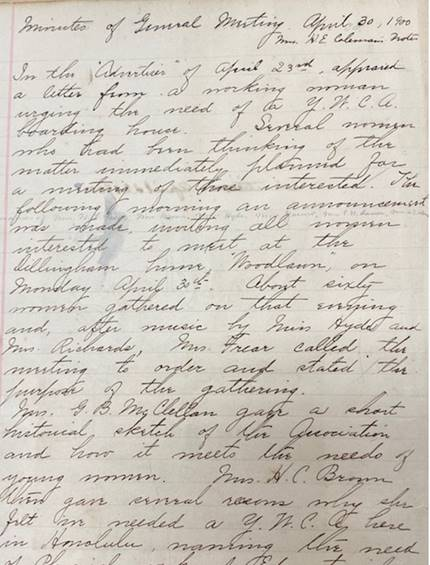 Minutes of General Meeting, April 30, 1900
Mrs. H E Coleman's Notes
In the "Advertiser" of April 23rd, appeared
a letter from a working woman
urging the need of a Y.W.C.A.
boarding house. Several women
who had been thinking of the
matter immediately planned for
a meeting of those interested. The
following morning an announcement
was made, inviting all women
interested to meet at the
Dillingham home, "Woodlawn", on
Monday April 30th. About sixty
women gathered on that evening
and, after music by Miss Hyde and
Mrs. Richards, Mrs. Frear called the
meeting to order and stated the
purpose of the gathering.
Mrs. G. B. McClellan gave a short
historical sketch of the Association
and how it meets the needs of
young women. Mrs. H. C. Brown
then gave several reasons why she
felt we needed a Y.W.C.A. here
in Honolulu, naming the need